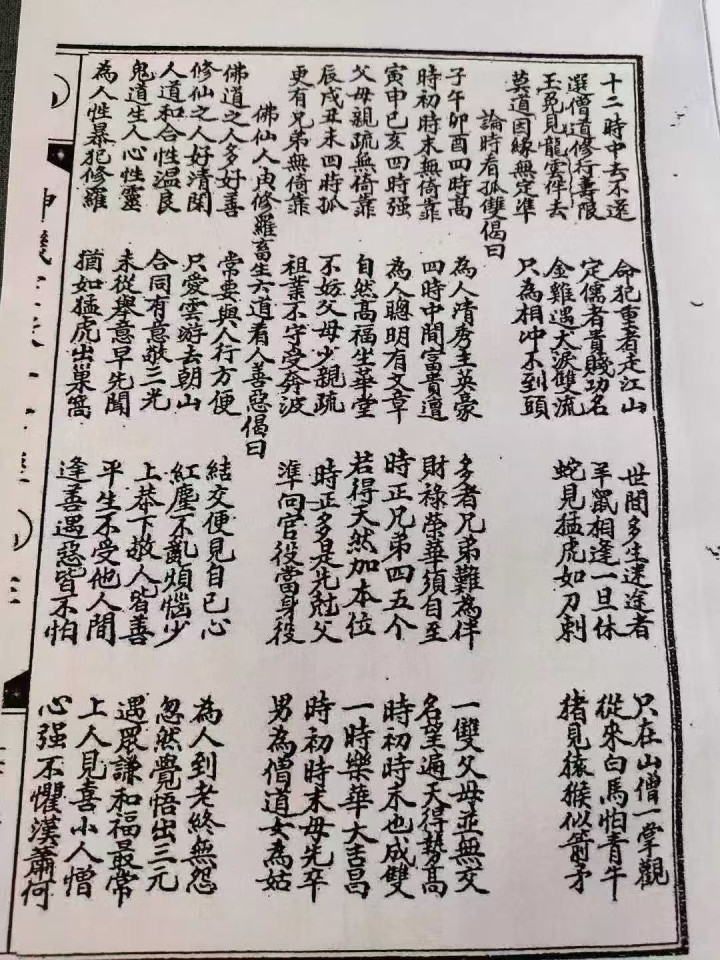 十二時中去不還　命犯重者走江山　世間多生迷途者　只在山僧一掌觀
選僧道修行壽限　定儒者貴賤功名　羊鼠相逢一旦休　從來白馬怕青牛
玉兔見龍雲伴去　金雞遇犬淚雙流　蛇見猛虎如刀刺　猪見猿猴似箭矛
莫道因緣無定準　只為相冲不到頭
論時看孤雙偈曰
子午卯酉四時高　為人清秀主英豪　多者兄弟難為伴　一雙父母並無交
時初時末無倚靠　四時中間富貴遭　財祿榮華須自至　名望遍天得勢高
寅申巳亥四時强　為人聰明有文章　時正兄弟四五个　時初時末也成雙
父母親疏無倚靠　自然高福坐華堂　若得天然加本位　一時樂華大吉昌
辰戌丑未四時孤　不妨父母少親疏　時正多是先尅父　時初時末母先卒
更有兄弟無倚靠　祖業不守受奔波　準向官役當身役　男為僧道女為姑
佛仙人由修羅畜生六道看人善惡偈曰
佛道之人多好善　常要與人行方便　結交便見自己心　為人到老終無怨
修仙之人好清閑　只愛雲游去朝山　紅塵不亂煩惱少　忽然覺悟出三元
人道和合性温良　合同有意敬三光　上恭下敬人皆善　遇眾謙和福最常
鬼道生人心性靈　未從舉意早先聞　平生不受他人間　上人見喜小人憎
為人性暴犯修羅　猶如猛虎出巢窩　逢善遇惡皆不怕　心强不懼漢蕭何